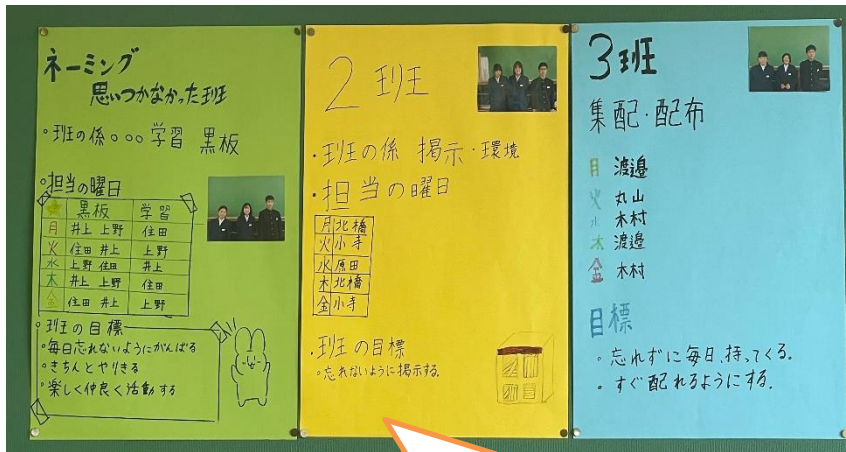 ネーミング
思いつかなかった班
・班の係○○○学習 黒板
・担当の曜日
黒板 学習
月 井上 上野 住田
火 住田 井上 上野
水 上野 住田 井上
木 井上 上野 住田
金 住田 井上 上野
・班の目標
・毎日忘れないようにがんばる
・きちんとやりきる
・楽しく仲良く活動する
2班
・班の係 掲示・環境
・担当の曜日
月 北橋
火 小寺
水 原田
木 北橋
金 小寺
・班の目標
・忘れないように掲示する。
3班
集配・配布
月 渡邉
火 丸山
水 木村
木 渡邉
金 木村
目標
・忘れずに毎日、持ってくる。
・すぐ配れるようにする。